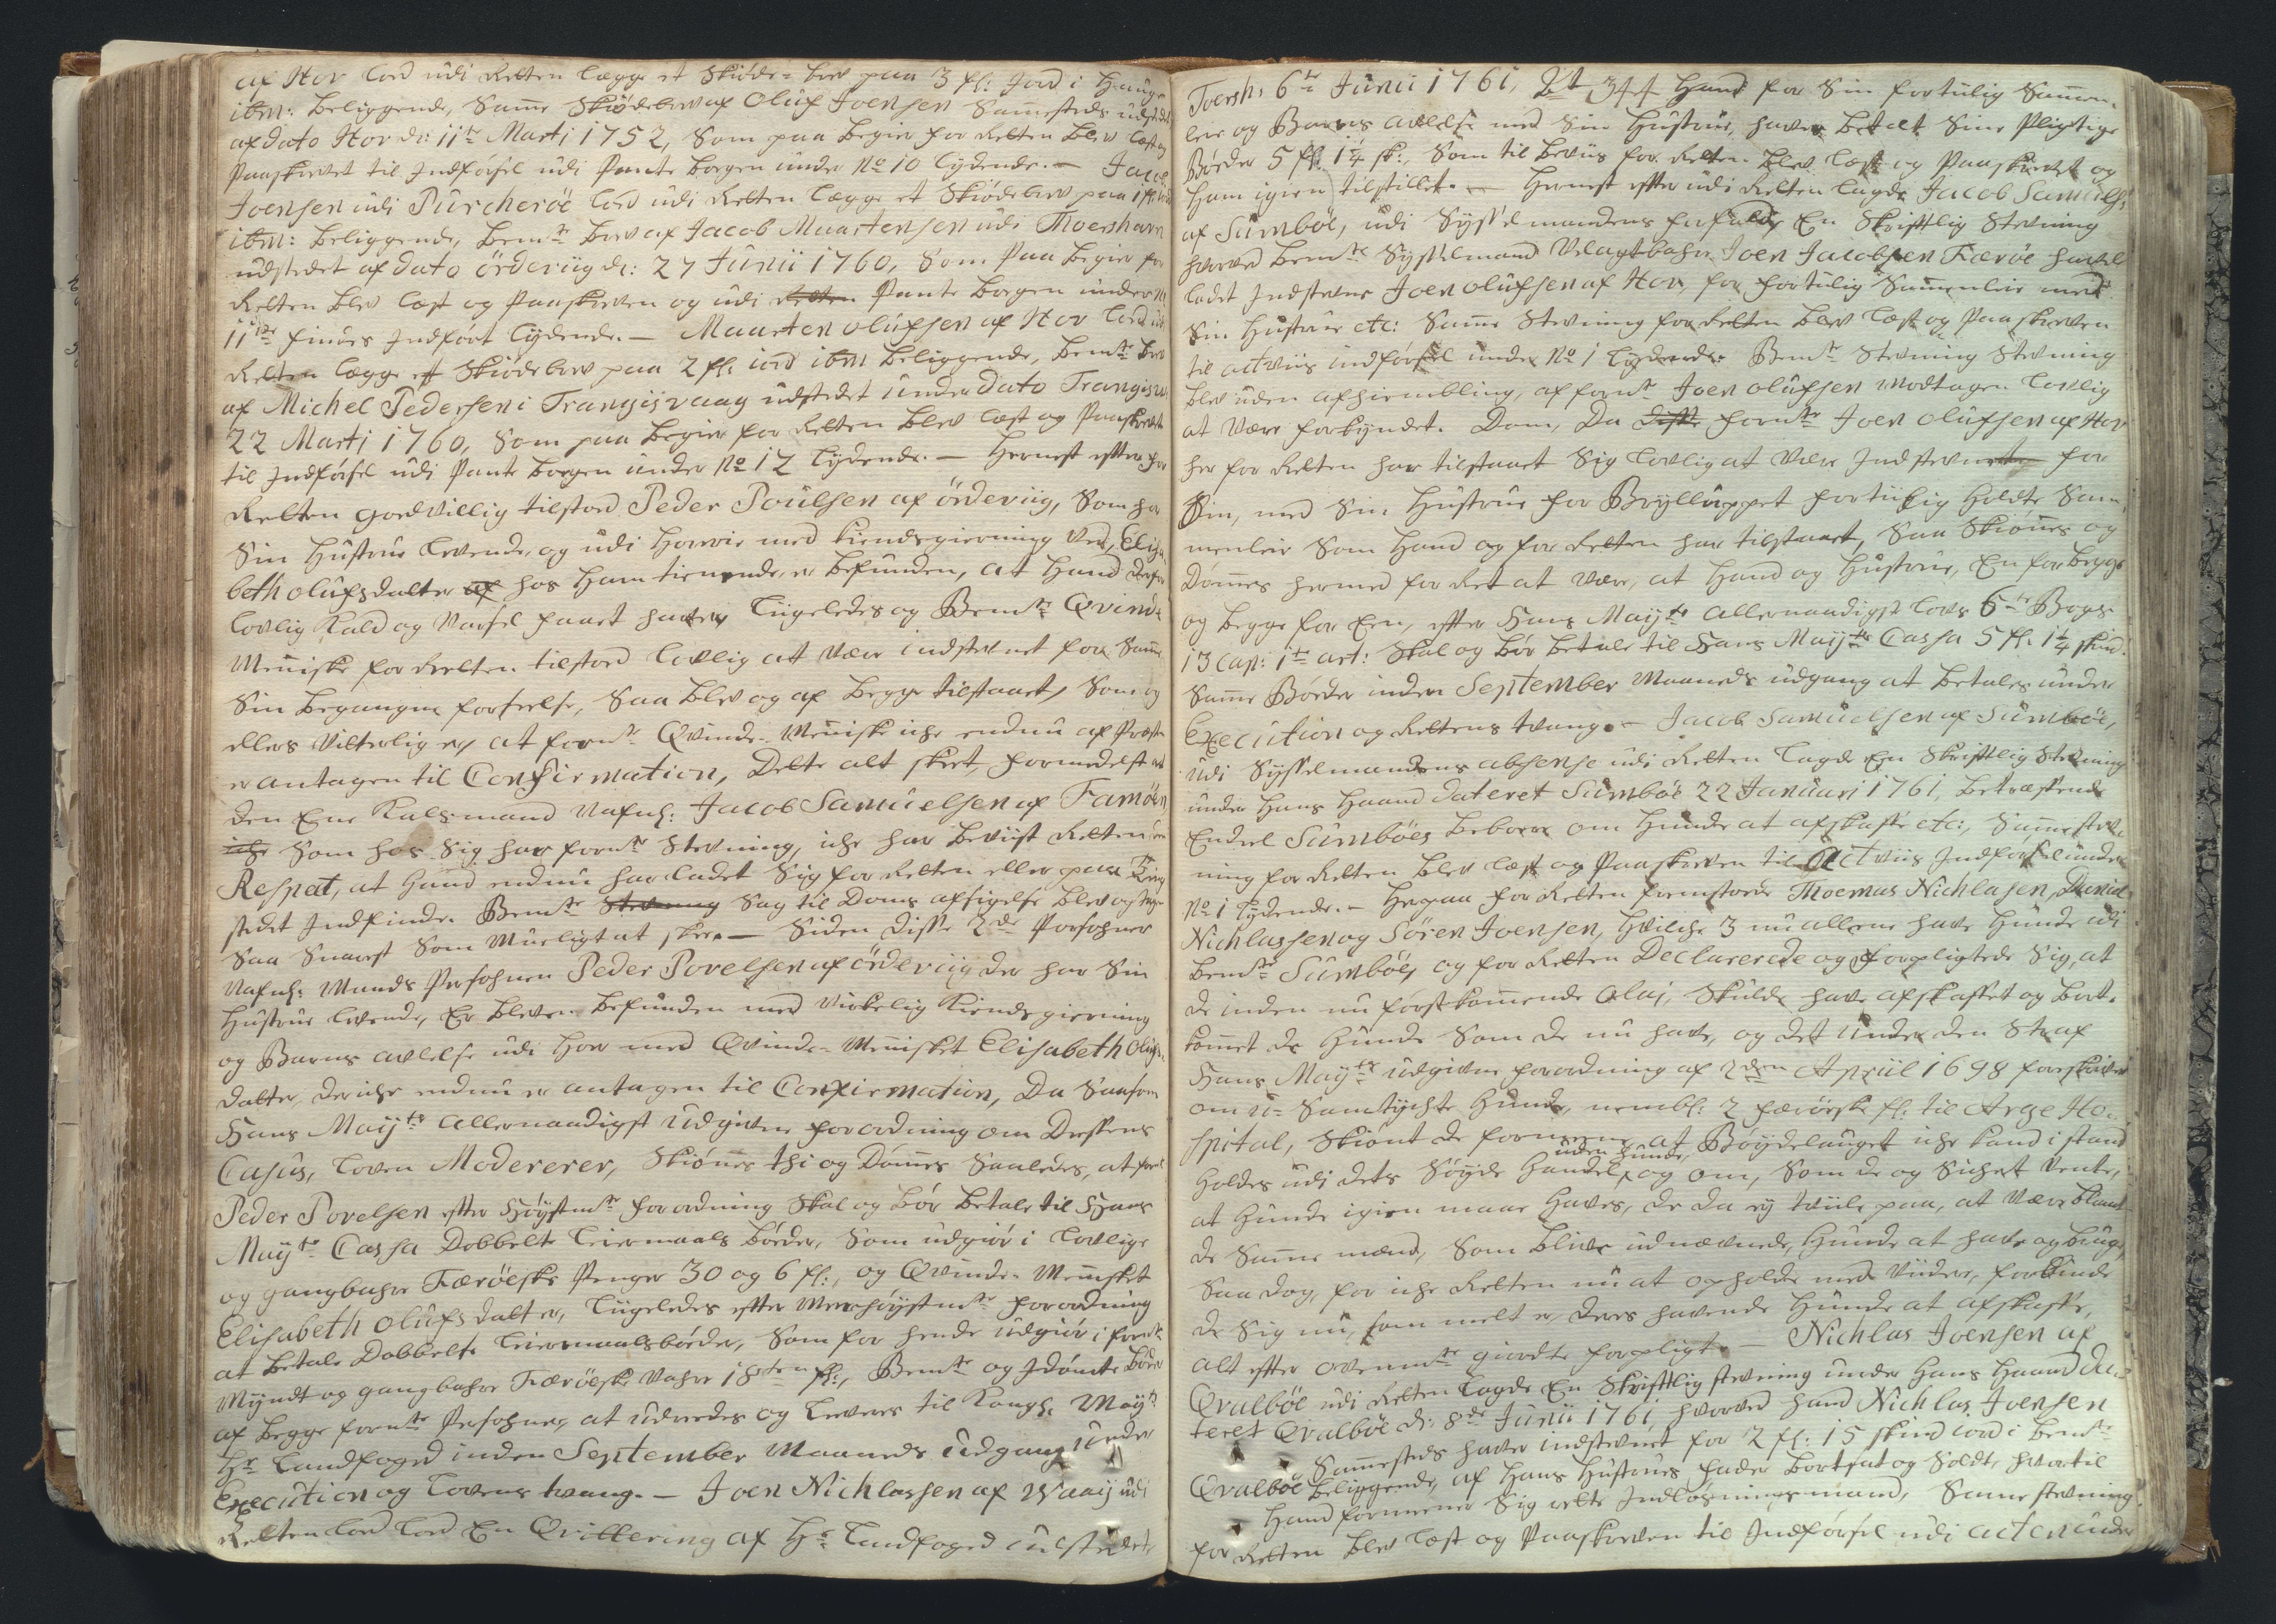 af Hov lod udi Retten legge et Skiöde-brev paa 3 fl: Jord i Hauge
ibm: beliggende, Samme Skiödebrev af Oluf Joensen Sammesteds udstedt
af dato Hov d: 11te Marti 1752, Som paa begier for Retten blev læst og
Paaskrevet til Indförsel udi Pante bogen under No 10 lydende. — Jacob
Joensen udi Purcheröe lod udi Retten legge et Skiödebrev paa 1 fl: iord
ibm: beliggende, bemte brev af Jacob Maartensen udi Thoershavn
udstedet af dato örderiig d: 27 Junii 1760, Som Paa begier for
Retten blev læst og Paaskreven og udi Retten Pante bogen under No
11te findes Indfört lydende. — Maarten olufsen af Hov lod udi
Retten legge et Skiödebrev paa 2 fl: iord ibm beliggende, bemte brev
af Michel Pedersen i Trangisvaag udstedet under dato Trangisv:
22 Marti 1760, Som paa begier for Retten blev læst og Paaskrevet
til Indförsel udi Pante bogen under No 12 lydende. — Hernest efter for
Retten godvillig tilstod Peder Poulsen af örderiig, Som har
Sin Hustrue levende, og udi Horerie med kiendsgierning ved Elisa
beth olufsdatter af hos Ham tienende, er befunden, at Hand derfor
lovlig Kald og Varsel faaet haver, liigeledes og bemte Qvinde
Menniske for Retten tilstod lovlig at være indstevnet for Samme
Sin begangne forseelse, Saa blev og af begge tilstaaet, Som og
ellers vitterlig er, at fornte Qvinde-Menniske iche endnu af Præsten
er antagen til Confirmation, Dette alt skeet, formedelst at
den Ene Kalsmand Nafnl: Jacob Samuelsen af Famöen
iche Som hos Sig har fornte Stevning, iche har beviist Retten den
Respect, at Hand endnu har ladet Sig for Retten eller paa Ting
stedet Indfinde. Bemte Stevning Sag til Doms afsigelse blev optagen
Saa Snarest Som Mueligt at skee. — Siden disse 2de Persohner
Nafnl: Mands Persohnen Peder Povelsen af örderiig der har Sin
Hustrue levende, Er bleven befunden med virkelig Kiendsgierning
og Barns avlelse udi Hor med Qvinde-Mennisket Elisabeth Olufs
datter, der iche endnu er antagen til Confirmation, Da Saasom
Hans Mayts Allernaadigst udgivne forordning om Dessens
Casus, loven Modererer, Skiönnes thi og Dömmes Saaledes, at fornte
Peder Povelsen efter Höystmte forordning Skal og bör betale til Hans
Mayts Cassa Dobbelte leiermaals böder, Som udgiör i lovlige
og gangbahre Færöeske Penger 30 og 6 fl:, og Qvinde-Mennisket
Elisabeth Olufsdatter, liigeledes efter Meerhöystmte forordning
at betale Dobbelte leiermaalsböder, Som for hende udgiör i fornte
Myndt og gangbahre Færöeske Vahre 18ten fl:, Bemte og Idömte böder
af begge fornte Persohner, at udredes og leveres til Kongl: Mayts
Hr Landfoged inden September Maaneds udgang under
Execution og lovens tvang. — Joen Nichlassen af Waaij udi
Retten lod lod En Qvittering af Hr Landfoged udstedet
Toersh: 6te Junii 1761, At Hand for Sin fortilig Sammen-
leie og Barns avlelse med Sin Hustrue, haver betalt Sine Pligtige
Böeder 5 fl: 1¼ sk:, Som til beviis for Retten blev læst og Paaskrevet og
Ham igien tilstillet. — Hernest efter udi Retten lagde Jacob Samuels:
af Sumböe, udi Syssælmandens forfald, En Skriftlig Stevning
hvorved bemte Sysselmand Velagtbahre Joen Jacobsen Færöe havde
ladet Indstevne Joen olufsen af Hov, for fortilig Sammenleie med
Sin Hustrue etc: Samme Stevning for Retten blev læst og Paaskreven
til actviis indförsel under No 1 lydende. Bemte Stevning Stevning
blev uden afhiembling, af fornte Joen olufsen Modtagen lovlig
at være forkyndet. Dom, Da disse fornte Joen Olufsen af Hov
her for Retten har tilstaaet Sig lovlig at være Indstevnet for
Sin, med Sin Hustrue for Brylluppet fortilig Holdte Sam-
menleie Som Hand og for Retten har tilstaaet, Saa Skiönnes og
Dömmes hermed for Ret at være, at Hand og Hustrue, En for begge
og begge for Een, efter Hans Mayts Allernaadigst lovs 6te Bogs
13 Cap: 1te art: Skal og bör betale til Hans Mayts Cassa 5 fl: 1¼ skind.
Samme Böeder inden September Maaneds udgang at betales under
Execution og Rettens tvang. — Jacob Samuelsen af Sumböe,
udi Sysselmandens absense udi Retten lagde En Skriftlig Stevning
under Hans Haand dateret Sumböe 22 Januari 1761, betræffende
Endeel Sumböes beboere om Hunde at afskaffe etc:, Samme Stev-
ning for Retten blev læst og Paaskreven til Actviis Indförsel under
No 1 lydende. — Herpaa for Retten fremstoede Thoemas Nichlasen, Daniel
Nichlassen og Sören Joensen, Hvilche 3 nu allene have Hunde udi
bemte Sumböe, og for Retten Declarerede og forpligtede Sig, at
de inden nu förstkommende Olaj, Skulde have afskaffet og bort-
kommet de Hunde Som de nu have, og det under den Straf
Hans Mayts udgivne forordning af 2den Apriil 1698 forskriver
om u-Samtychte Hunde, nembl: 2 færöiske fl: til Arge Ho-
spital, Skiönt de formeene, at Böyðelauget iche kand i stand
holdes udi dets Söyde Handel uden Hunde, og om, Som de og Sichert vente,
at Hunde igien maae Haves, de da ej tviile paa, at være blant
de Samme mænd, Som blive udnævnede, Hunde at have og bruge,
Saa dog, for iche Retten nu at opholde med Viidere, forbinde
de Sig nu, som melt er, deres havende Hunde at afskaffe,
alt efter ovenmte giordte forpligt. — Nichlas Joensen af
Qvalböe udi Retten lagde En Skriftlig stevning under Hans Haand da-
teret Qvalböe d: 8de Junii 1761, hvorved hand Nichlas Joensen
Sammesteds haver indstevnet for 2 fl: 15 skind iord i bemte
Qvalböe beliggende, af Hans Hustrues fader bortsat og Soldt, hvortil
Hand formeener Sig rette Indlösningsmand, Samme stevning
for Retten blev læst og Paaskreven til Indförsel udi acten under